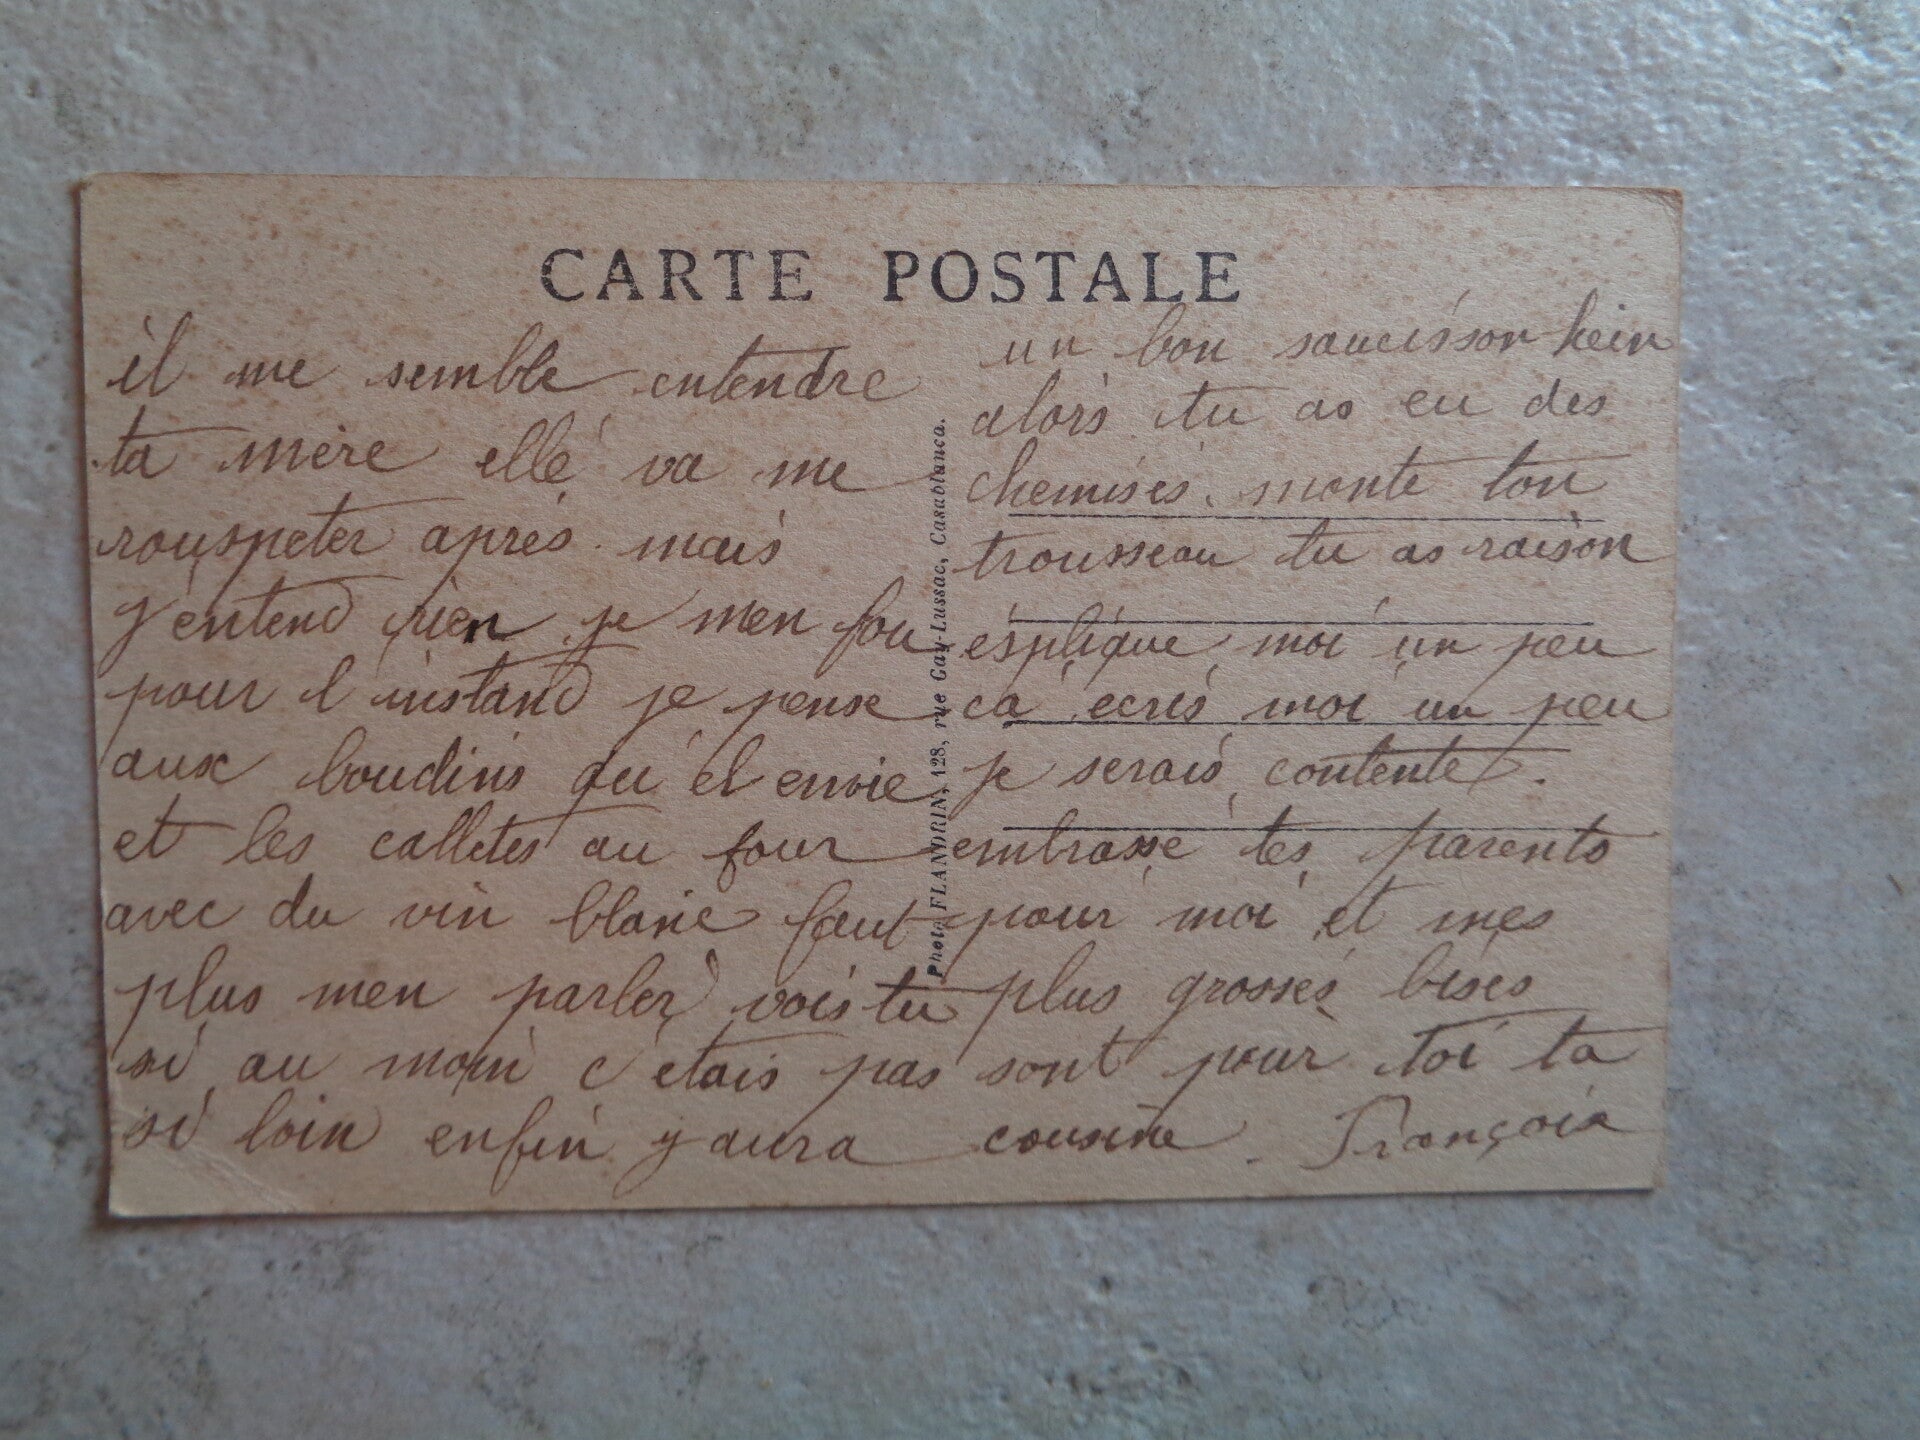 CARTE POSTALE
il me semble entendre
ta mère elle va me
rouspeter après mais
j'entend rien je men fou
pour l'instand je pense
aux boudins qu'el envoie
et les calletes au four
avec du vin blanc faut
plus men parler vois tu
si au moin c'etais pas
si loin enfin y aura
Photo FLANDRIN, 128, rue Gay-Lussac, Casablanca.
un bon saucisson hein
alors tu as eu des
chemises. monte ton
trousseau tu as raison
esplique moi un peu
ca ecris moi un peu
je serais contente.
embrasse tes parents
pour moi et mes
plus grosses bises
sont pour toi ta
cousine. Françoia